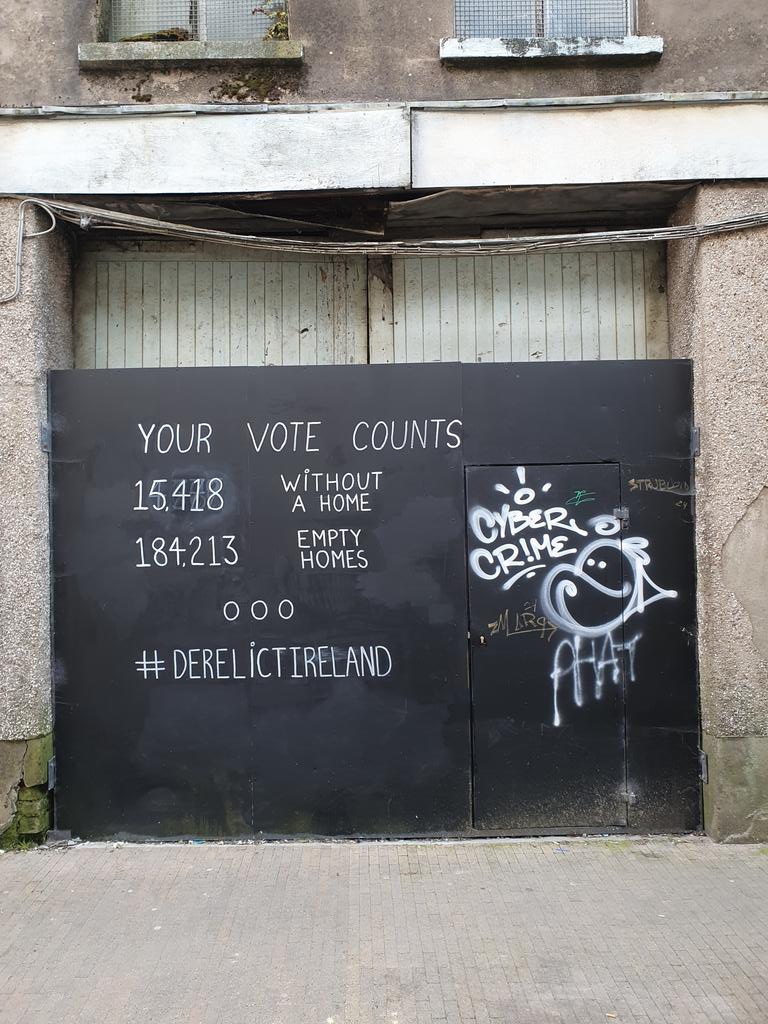 YOUR VOTE COUNTS
15,418 WiTHOUT A HOME
184,213 EMPTY HOMES
OOO
#DERELiCTIRELAND
CYBER
CR!ME
PHAT